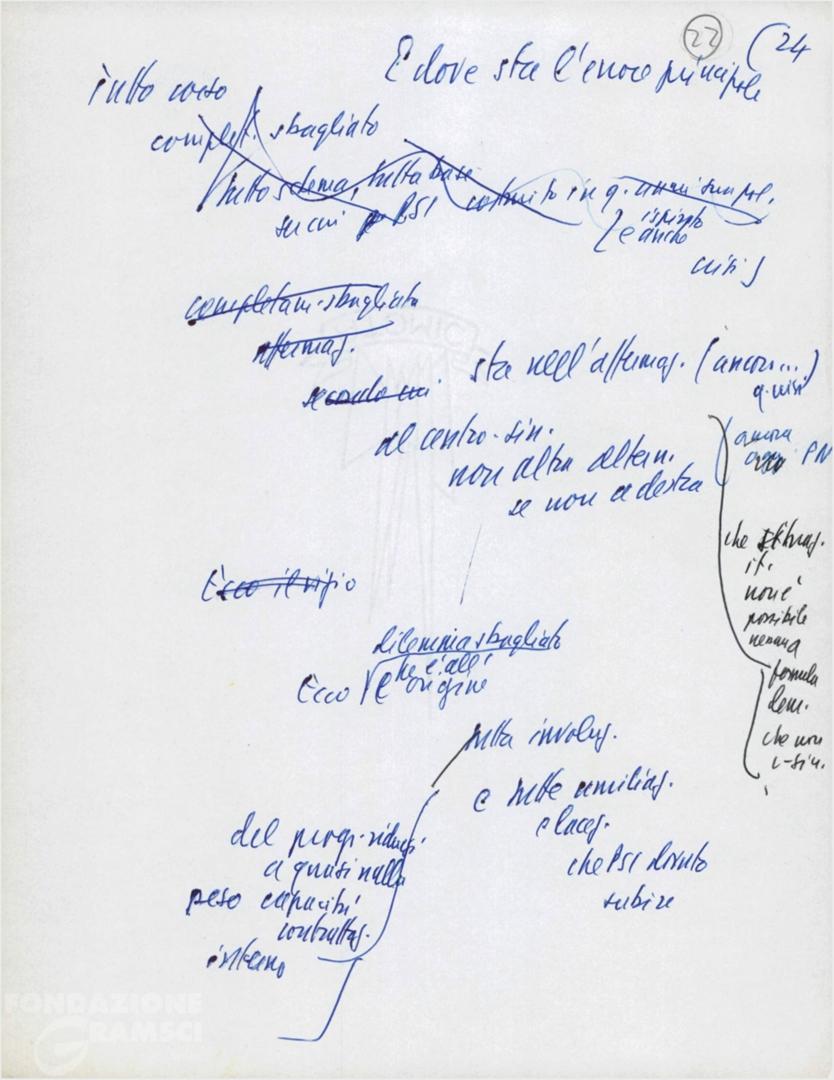 22
(24
E dove sta l'errore principale
tutto corso
complet. sbagliato
tutto schema, tutta base
su cui PSI
costruito in q. anni sua pol.
[e anche
ispirato
crisi]
completam. sbagliata
affermaz.
secondo cui
sta nell'affermaz. (ancora...)
q. crisi
al centro-sin.
non altra altern.
se non a destra
ancora
oggi PN
che situaz.
it.
non è
possibile
nessuna
formula
dem.
che non
c-sin.
Ecco il vizio
dilemma sbagliato
Ecco
che è all'
origine
tutta involuz.
e tutte umiliaz.
e lacer.
che PSI dovuto
subire
del progr. ridursi
a quasi nulla
peso capacità
contrattaz.
interno
FONDAZIONE
GRAMSCI